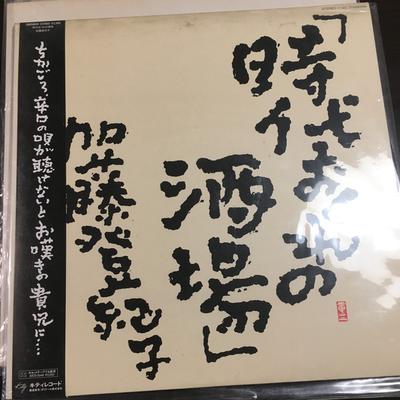 「時代おくれの
酒場」
加藤登紀子
ちかごろ、辛口の唄が聴けないとお嘆きの貴兄に…
キティレコード